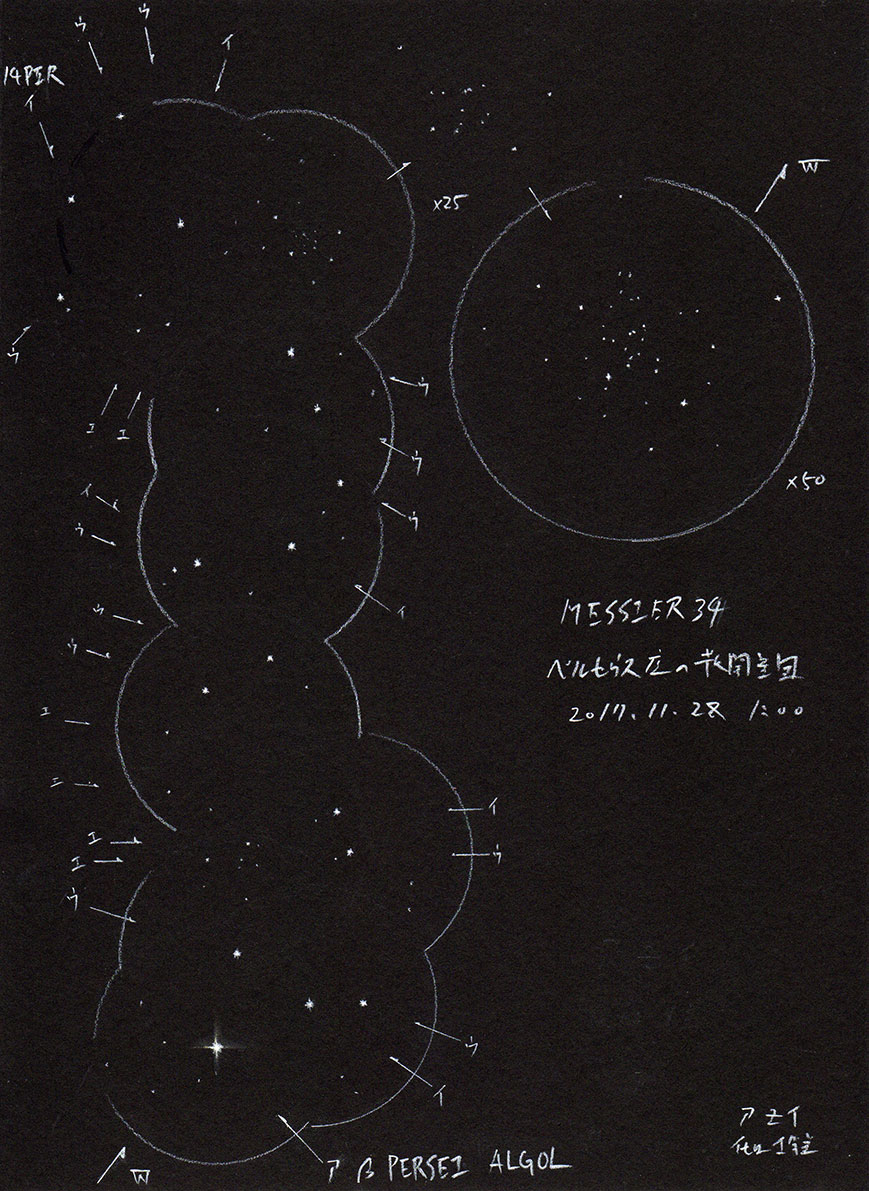 ウ
ウ
イ
14PER
イ
W
x25
ウ
ウ
エ
エ
ウ
x50
イ
ウ
ウ
イ
MESSIER 34
ウ
ウ
ペルセウス座の散開星団
エ
2017.11.28 1:00
エ
イ
エ
ウ
エ
ウ
ウ
イ
アゼイ
W
ア β PERSEI ALGOL